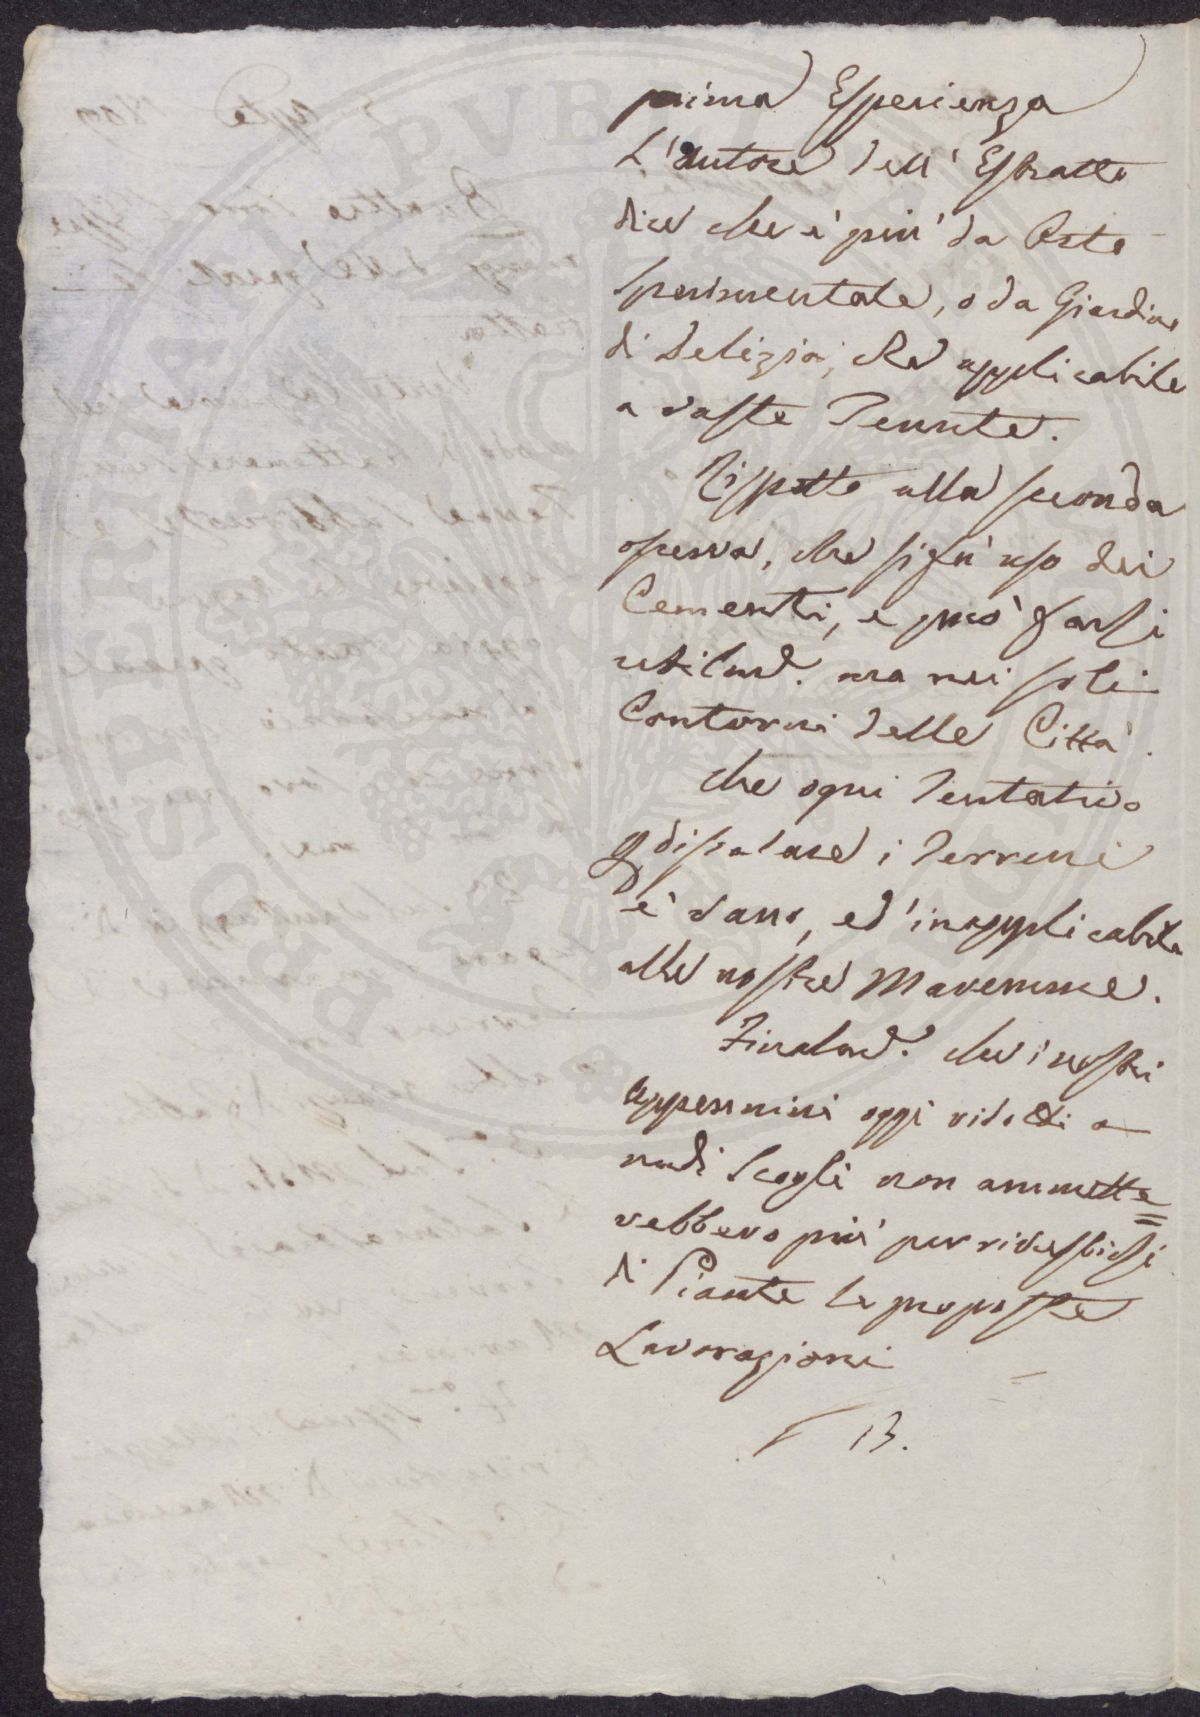 prima Esperienza
L'autore dell' Estratto
dice che è più da Orto
sperimentale, o da Giardino
di Delizia, che applicabile
a vaste Tenute.
Rispetto alla seconda
osserva, che si fa uso dei
Cementi, e può farsi
utilmᵉ. ma nei soli
Contorni delle Città.
Che ogni Tentativo
dissalare i Terreni
è vano, ed' inapplicabile
alle nostre Maremme.
Finalmᵉ. che i nostri
Appennini oggi ridotti a
nudi Scogli non ammette=
rebbero più per rivestirsi
di Piante le proposte
Lavorazioni
B.